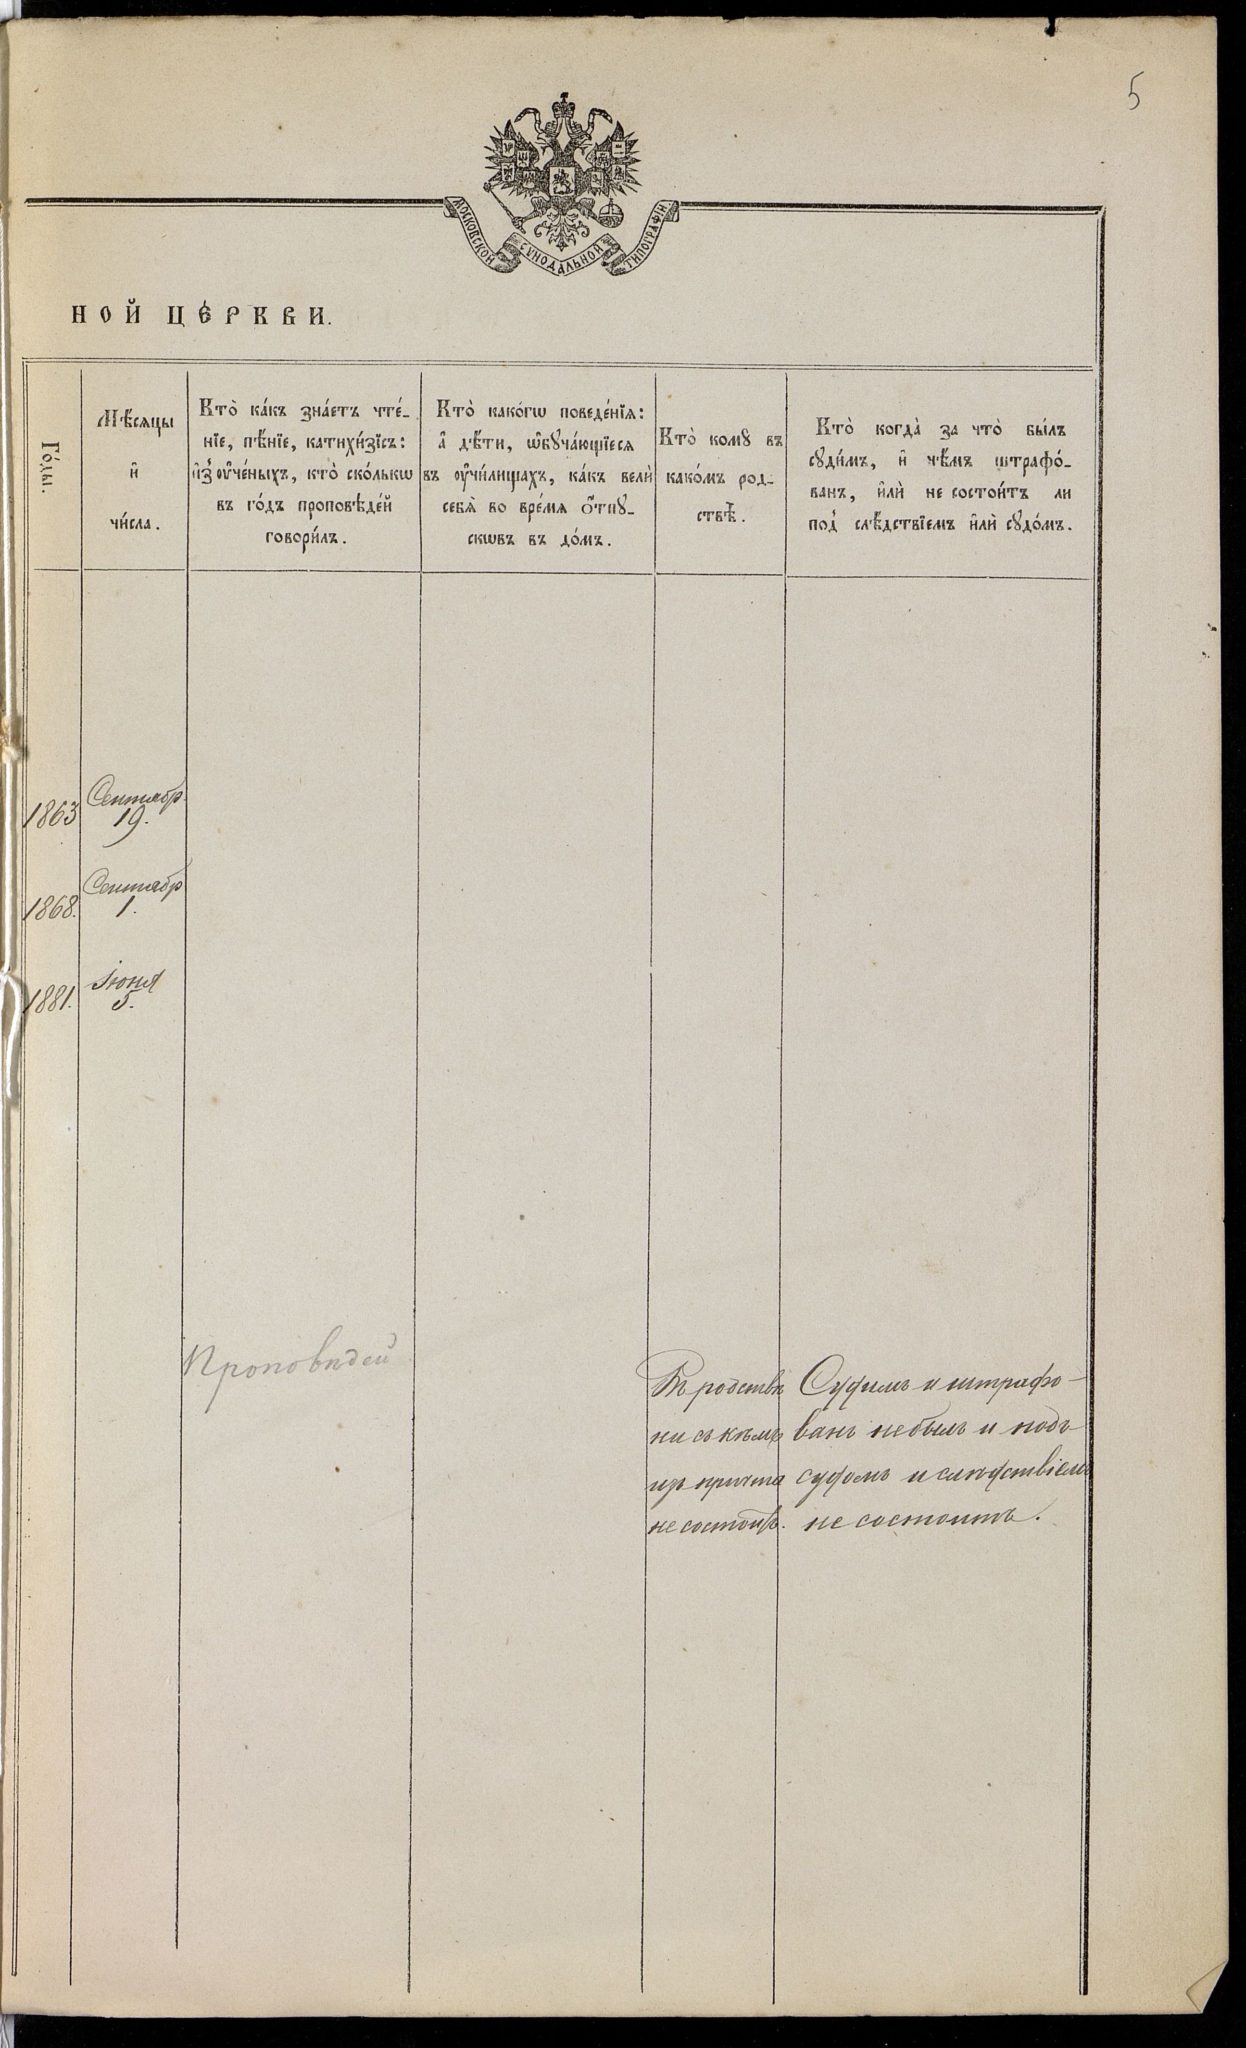 5
МОСКОВСКОЙ СѴНОДАЛЬНОЙ ТИПОГРАФІИ
НОЙ ЦЕ́РКВИ.
Го́ды.
Мѣ́сяцы
и҆
чи́сла.
Кто̀ ка́къ зна́етъ чте́-
нїе, пѣ́нїе, катихи́зїсъ:
и҆з̾ оу҆че́ныхъ, кто̀ ско́лькѡ
въ го́дъ проповѣ́дей
говори́лъ.
Кто̀ како́гѡ поведе́нїѧ:
а҆ дѣ́ти, ѡ҆бꙋча́ющїесѧ
въ оу҆чи́лищахъ, ка́къ велѝ
себѧ̀ во вре́мѧ ѻ҆́тпꙋ-
скѡвъ въ до́мъ.
Кто̀ комꙋ въ
како́мъ род-
ствѣ̀.
Кто̀ когда̀ за что̀ бы́лъ
сꙋди́мъ, и҆ чѣ́мъ штрафо́-
ванъ, и҆лѝ не состои́тъ ли
под̾ слѣ́дствїемъ и҆лѝ сꙋдо́мъ.
1863
Сентябр.
19.
1868.
Сентябр
1.
1881.
Іюня
5.
Проповѣдей
Въ родствѣ
ни съ кѣмъ
изъ причта
не состоитъ.
Судимъ и штрафо-
ванъ не былъ и подъ
судомъ и слѣдствіемъ
не состоитъ.